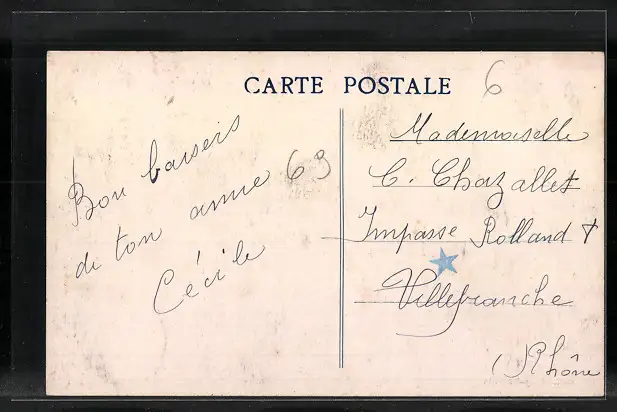 CARTE POSTALE
6
Bon baisers
de ton amie 69
Cécile
Mademoiselle
C. Chazallet
Impasse Rolland 7
Villefranche
(Rhône